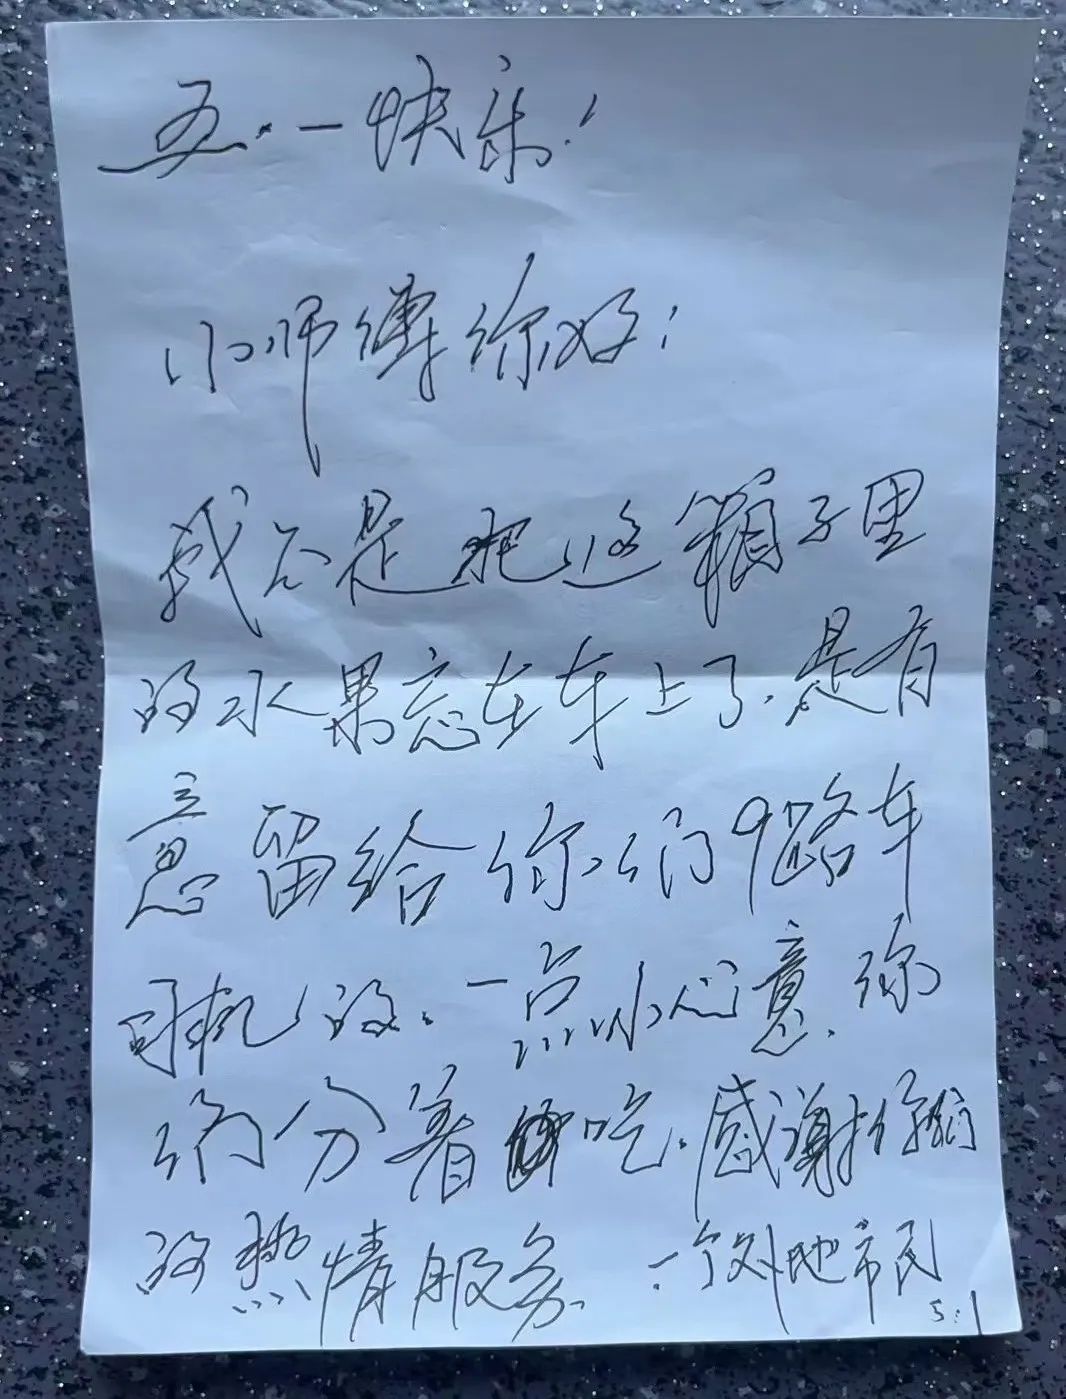 五·一快乐!
小师傅你好:
我不是把这箱子里
的水果忘在车上了.是有
意留给你们9路车
司机的.一点小心意.你
们分着吃.感谢你们
的热情服务. 一个外地市民
5.1